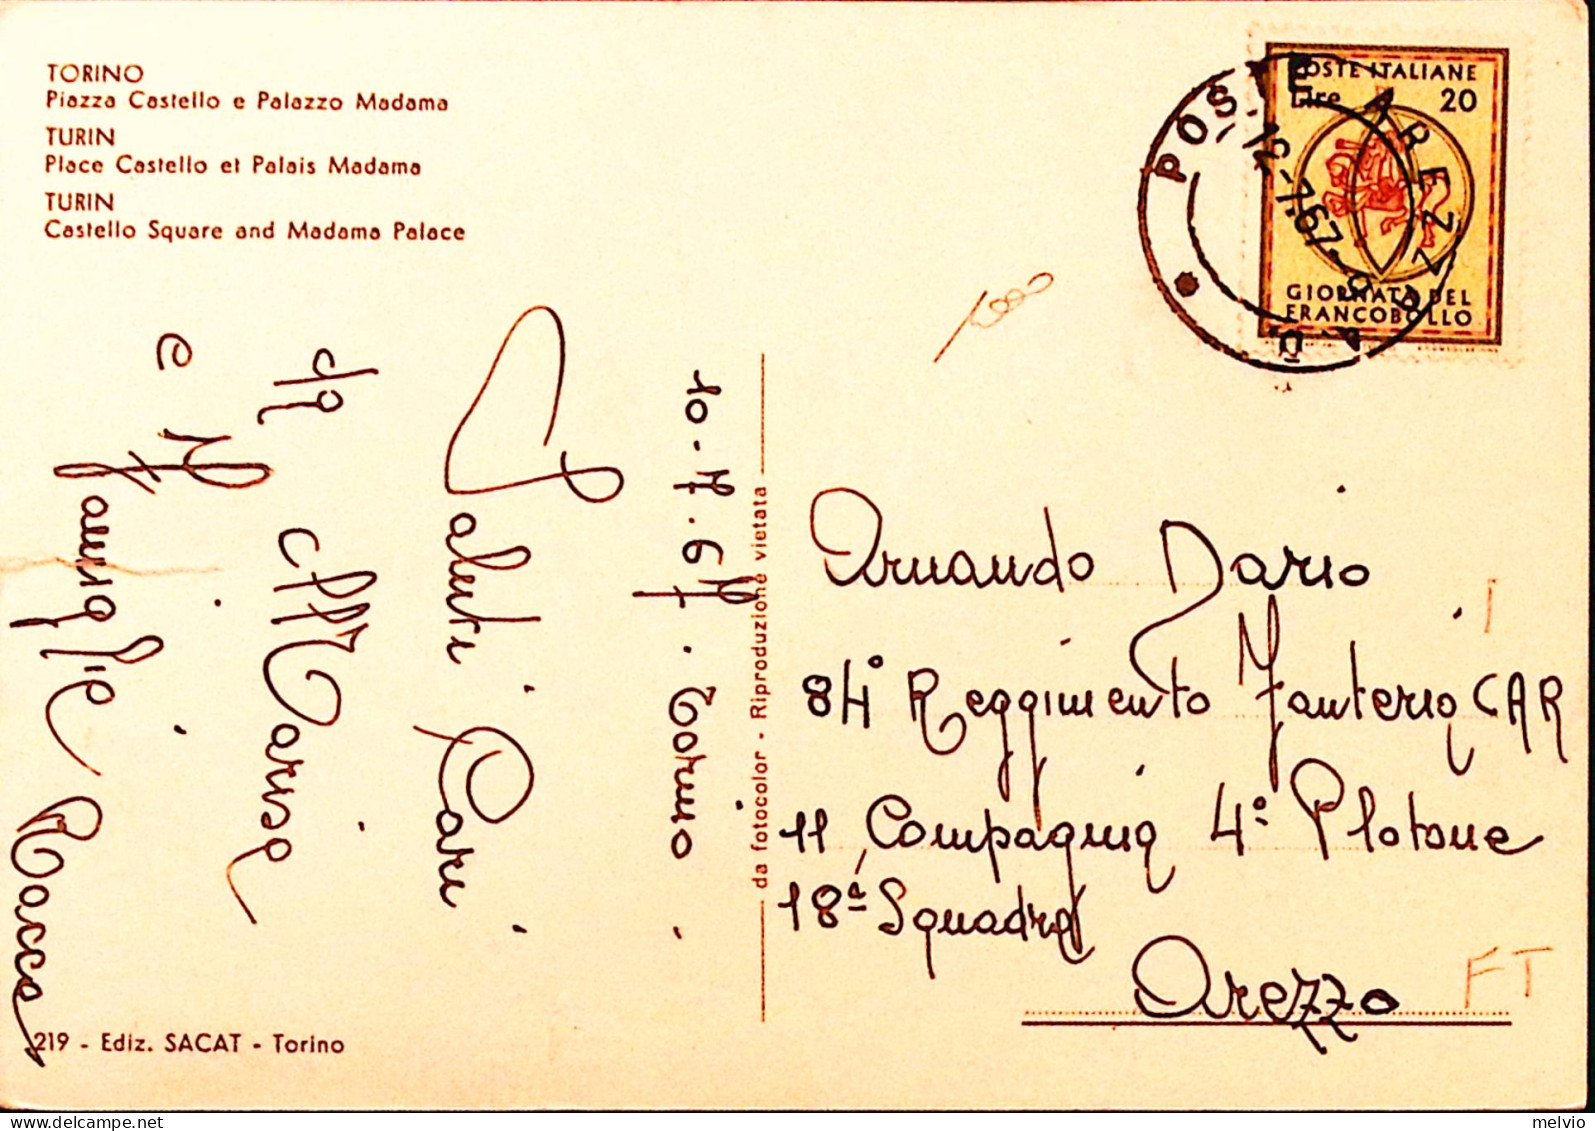 TORINO
Piazza Castello e Palazzo Madama
TURIN
Place Castello et Palais Madama
TURIN
Castello Square and Madama Palace
POSTE ITALIANE
Lire 20
GIORNATA DEL
FRANCOBOLLO
POSTE AREZZO
12-7.67
10-7.67. Torino.
Saluti Cari
da Marisa
e Famiglia Racca
da fotocolor - Riproduzione vietata
Armando Dario
84° Reggimento Fanteria CAR
11 Compagnia 4° Plotone
18ª Squadra
Arezzo
FT
219 - Ediz. SACAT - Torino
melvio